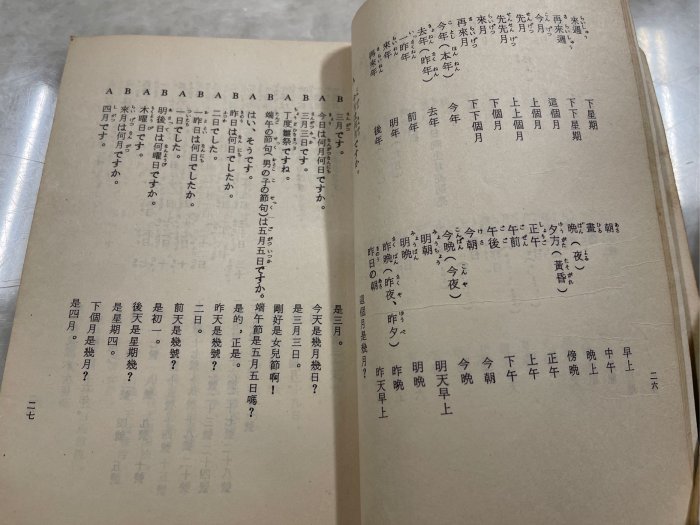 来週 下星期
再来週 下下星期
今月 這個月
先月 上個月
先先月 上上個月
来月 下個月
再来月 下下個月
今年(本年) 今年
去年(昨年) 去年
一昨年 前年
来年 明年
再来年 後年
朝 早上
晝 中午
晩(夜) 晚上
夕方(黃昏) 傍晚
正午 正午
午前 上午
午後 下午
今朝 今朝
今晩(今夜) 今晚
明朝 明天早上
明晩 明晚
昨晩(昨夜、昨夕) 昨晚
昨日の朝 昨天早上
這個月是幾月?
二六
B 三月です。 是三月。
A 今日は何月何日ですか。 今天是幾月幾日?
B 三月三日です。 是三月三日。
A 丁度雛祭ですね。 剛好是女兒節啊!
端午の節句(男の子の節句)は五月五日ですか。 端午節是五月五日嗎?
B はい、そうです。 是的,正是。
A 昨日は何日でしたか。 昨天是幾號?
B 二日でした。 二日。
A 一昨日は何日でしたか。 前天是幾號?
B 一日でした。 是初一。
A 明後日は何曜日ですか。 後天是星期幾?
B 木曜日です。 是星期四。
A 来月は何月ですか。 下個月是幾月?
四月です。 是四月。
二七